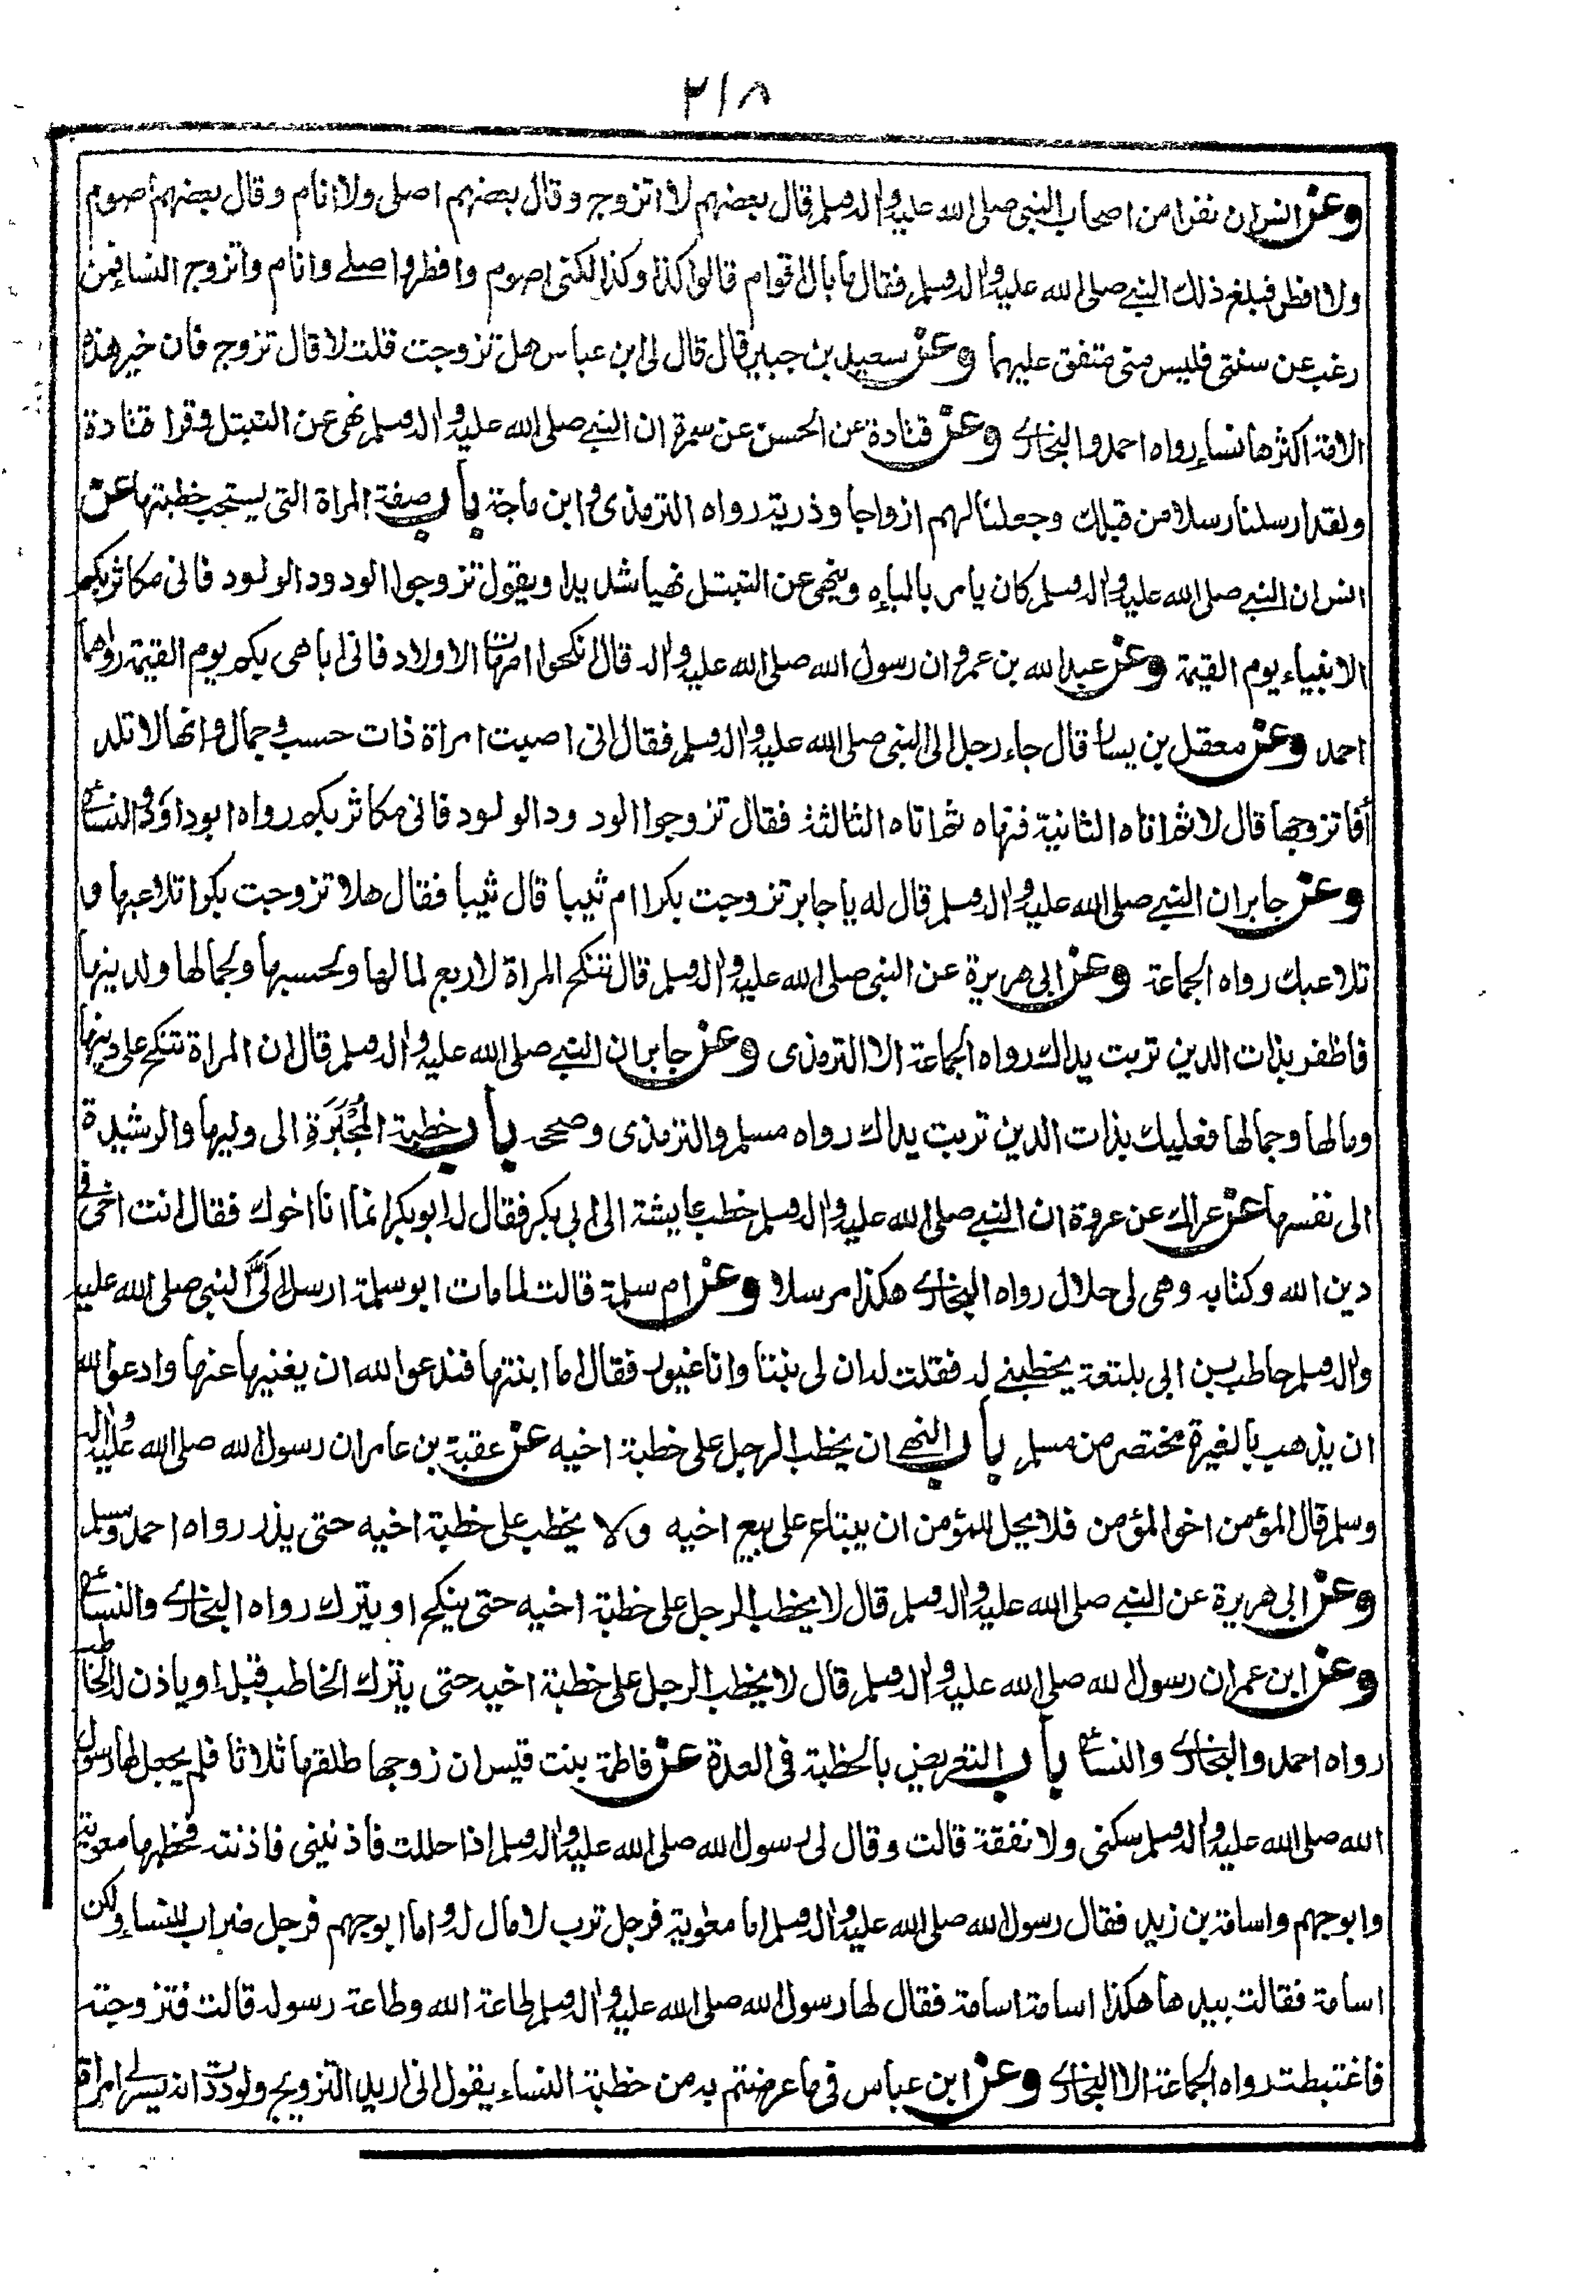 ٢١٨
وعن انس ان نفرا من اصحاب النبى صلى الله عليه واله وسلم قال بعضهم لا اتزوج وقال بعضهم اصلى ولا انام وقال بعضهم اصوم
ولا افطر فبلغ ذلك النبى صلى الله عليه واله وسلم فقال ما بال اقوام قالوا كذا وكذا لكنى اصوم وافطر واصلى وانام واتزوج النساء فمن
رغب عن سنتى فليس منى متفق عليهما وعن سعيد بن جبير قال قال لى ابن عباس هل تزوجت قلت لا قال تزوج فان خير هذه
الامة اكثرها نساء رواه احمد والبخارى وعن قتادة عن الحسن عن سمرة ان النبى صلى الله عليه واله وسلم نهى عن التبتل وقرا قتادة
ولقد ارسلنا رسلا من قبلك وجعلنا لهم ازواجا وذرية رواه الترمذى وابن ماجة باب صفة المراة التى يستحب خطبتها عن
انس ان النبى صلى الله عليه واله وسلم كان يامر بالباه وينهى عن التبتل نهيا شديدا ويقول تزوجوا الودود الولود فانى مكاثر بكم
الانبياء يوم القيمة وعن عبد الله بن عمرو ان رسول الله صلى الله عليه واله قال انكحوا امهات الاولاد فانى اباهى بكم يوم القيمة رواهما
احمد وعن معقل بن يسار قال جاء رجل الى النبى صلى الله عليه واله وسلم فقال انى اصبت امراة ذات حسب وجمال وانها لا تلد
أفاتزوجها قال لا ثم اتاه الثانية فنهاه ثم اتاه الثالثة فقال تزوجوا الودود الولود فانى مكاثر بكم رواه ابو داؤد والنسائى
وعن جابر ان النبى صلى الله عليه واله وسلم قال له يا جابر تزوجت بكرا ام ثيبا قال ثيبا فقال هلا تزوجت بكرا تلاعبها و
تلاعبك رواه الجماعة وعن ابى هريرة عن النبى صلى الله عليه واله وسلم قال تنكح المراة لاربع لمالها ولحسبها ولجمالها ولدينها
فاظفر بذات الدين تربت يداك رواه الجماعة الا الترمذى وعن جابر ان النبى صلى الله عليه واله وسلم قال ان المراة تنكح على دينها
ومالها وجمالها فعليك بذات الدين تربت يداك رواه مسلم والترمذى وصححه باب خطبة المُجْبَرَةِ الى وليها والرشيدة
الى نفسها عن عراك عن عروة ان النبى صلى الله عليه واله وسلم خطب عايشة الى ابى بكر فقال له ابو بكر انما انا اخوك فقال انت اخى فى
دين الله وكتابه وهى لى حلال رواه البخارى هكذا مرسلا وعن ام سلمة قالت لما مات ابو سلمة ارسل الىَّ النبى صلى الله عليه
واله وسلم حاطب بن ابى بلتعة يخطبنى له فقلت له ان لى بنتا وانا غيور فقال اما ابنتها فندعوا الله ان يغنيها عنها وادعو الله
ان يذهب بالغيرة مختصر من مسلم باب النهى ان يخطب الرجل على خطبة اخيه عن عقبة بن عامر ان رسول الله صلى الله عليه واله
وسلم قال المؤمن اخو المؤمن فلا يحل للمؤمن ان يبتاع على بيع اخيه ولا يخطب على خطبة اخيه حتى يذر رواه احمد ومسلم
وعن ابى هريرة عن النبى صلى الله عليه واله وسلم قال لا يخطب الرجل على خطبة اخيه حتى ينكح او يترك رواه البخارى والنسائى
وعن ابن عمر ان رسول الله صلى الله عليه واله وسلم قال لا يخطب الرجل على خطبة اخيه حتى يترك الخاطب قبله او ياذن له الخاطب
رواه احمد والبخارى والنسائى باب التعريض بالخطبة فى العدة عن فاطمة بنت قيس ان زوجها طلقها ثلاثا فلم يجعل لها رسول
الله صلى الله عليه واله وسلم سكنى ولا نفقة قالت وقال لى رسول الله صلى الله عليه واله وسلم اذا حللت فاذنينى فاذنته فخطبها معوية
وابو جهم واسامة بن زيد فقال رسول الله صلى الله عليه واله وسلم اما معوية فرجل ترب لا مال له واما ابو جهم فرجل ضراب للنساء ولكن
اسامة فقالت بيدها هكذا اسامة اسامة فقال لها رسول الله صلى الله عليه واله وسلم طاعة الله وطاعة رسوله قالت فتزوجته
فاغتبطت رواه الجماعة الا البخارى وعن ابن عباس فى ما عرضتم به من خطبة النساء يقول انى اريد التزويج ولوددت انه يسر لى امراة